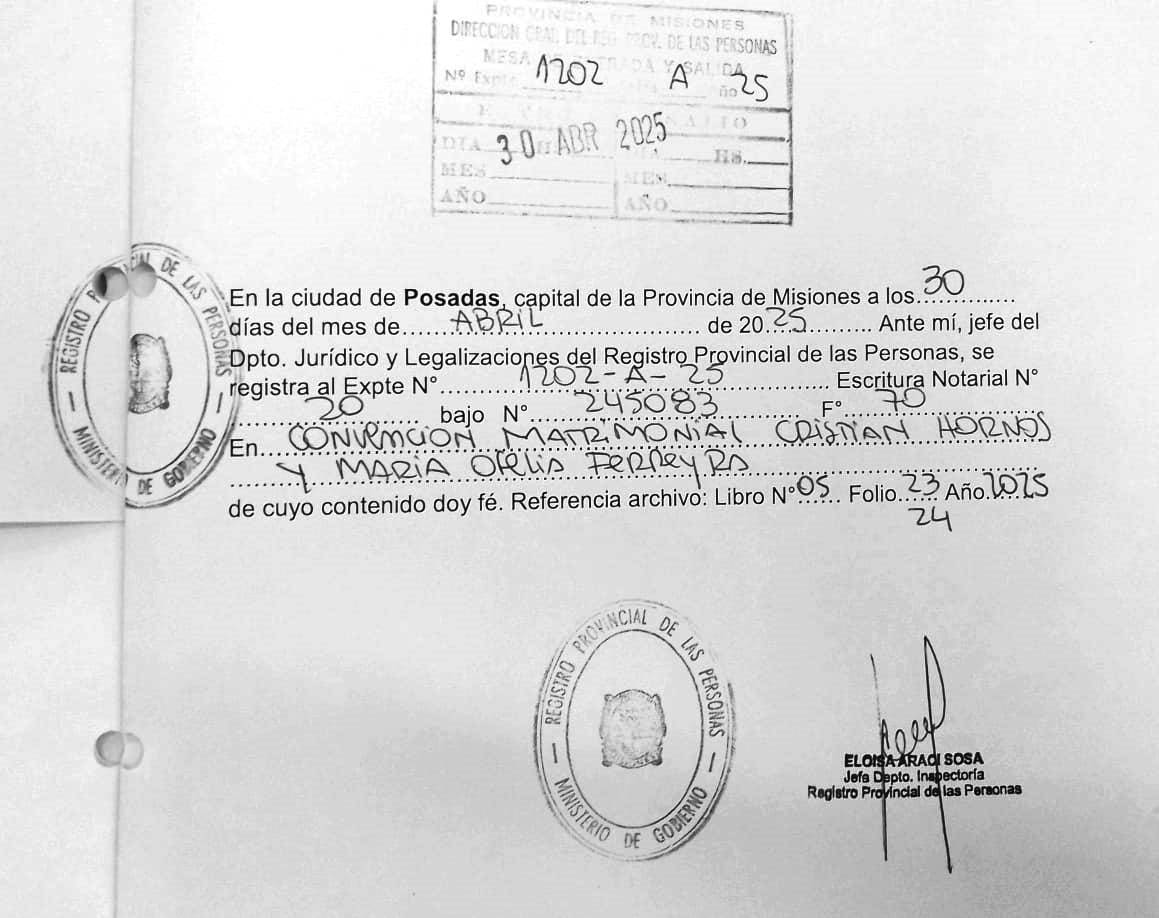 PROVINCIA DE MISIONES
DIRECCION GRAL. DEL REG. PROV. DE LAS PERSONAS
MESA DE ENTRADA Y SALIDA
Nº Expte 1202 A año 25
DIA 30 ABR 2025 HS.
MES MES
AÑO AÑO
REGISTRO PROVINCIAL DE LAS PERSONAS
MINISTERIO DE GOBIERNO
En la ciudad de Posadas, capital de la Provincia de Misiones a los 30
días del mes de ABRIL de 2025 Ante mí, jefe del
Dpto. Jurídico y Legalizaciones del Registro Provincial de las Personas, se
registra al Expte N° 1202-A-25 Escritura Notarial N°
20 bajo N° 245083 F° 70
En CONVENCION MATRIMONIAL CRISTIAN HORNOS
Y MARIA OFELIA FERREYRA
de cuyo contenido doy fé. Referencia archivo: Libro N° 05 Folio 23 Año 2025
24
REGISTRO PROVINCIAL DE LAS PERSONAS
MINISTERIO DE GOBIERNO
ELOISA ARACI SOSA
Jefa Depto. Inspectoría
Registro Provincial de las Personas